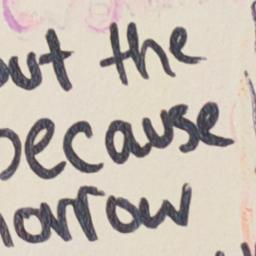 out the
because
arrow